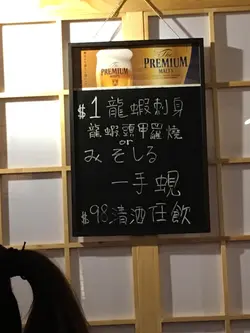 PREMIUM
The PREMIUM
MALT'S
$1龍蝦刺身
龍蝦頭甲羅燒
or
みそしる
一手蜆
$98清酒任飲